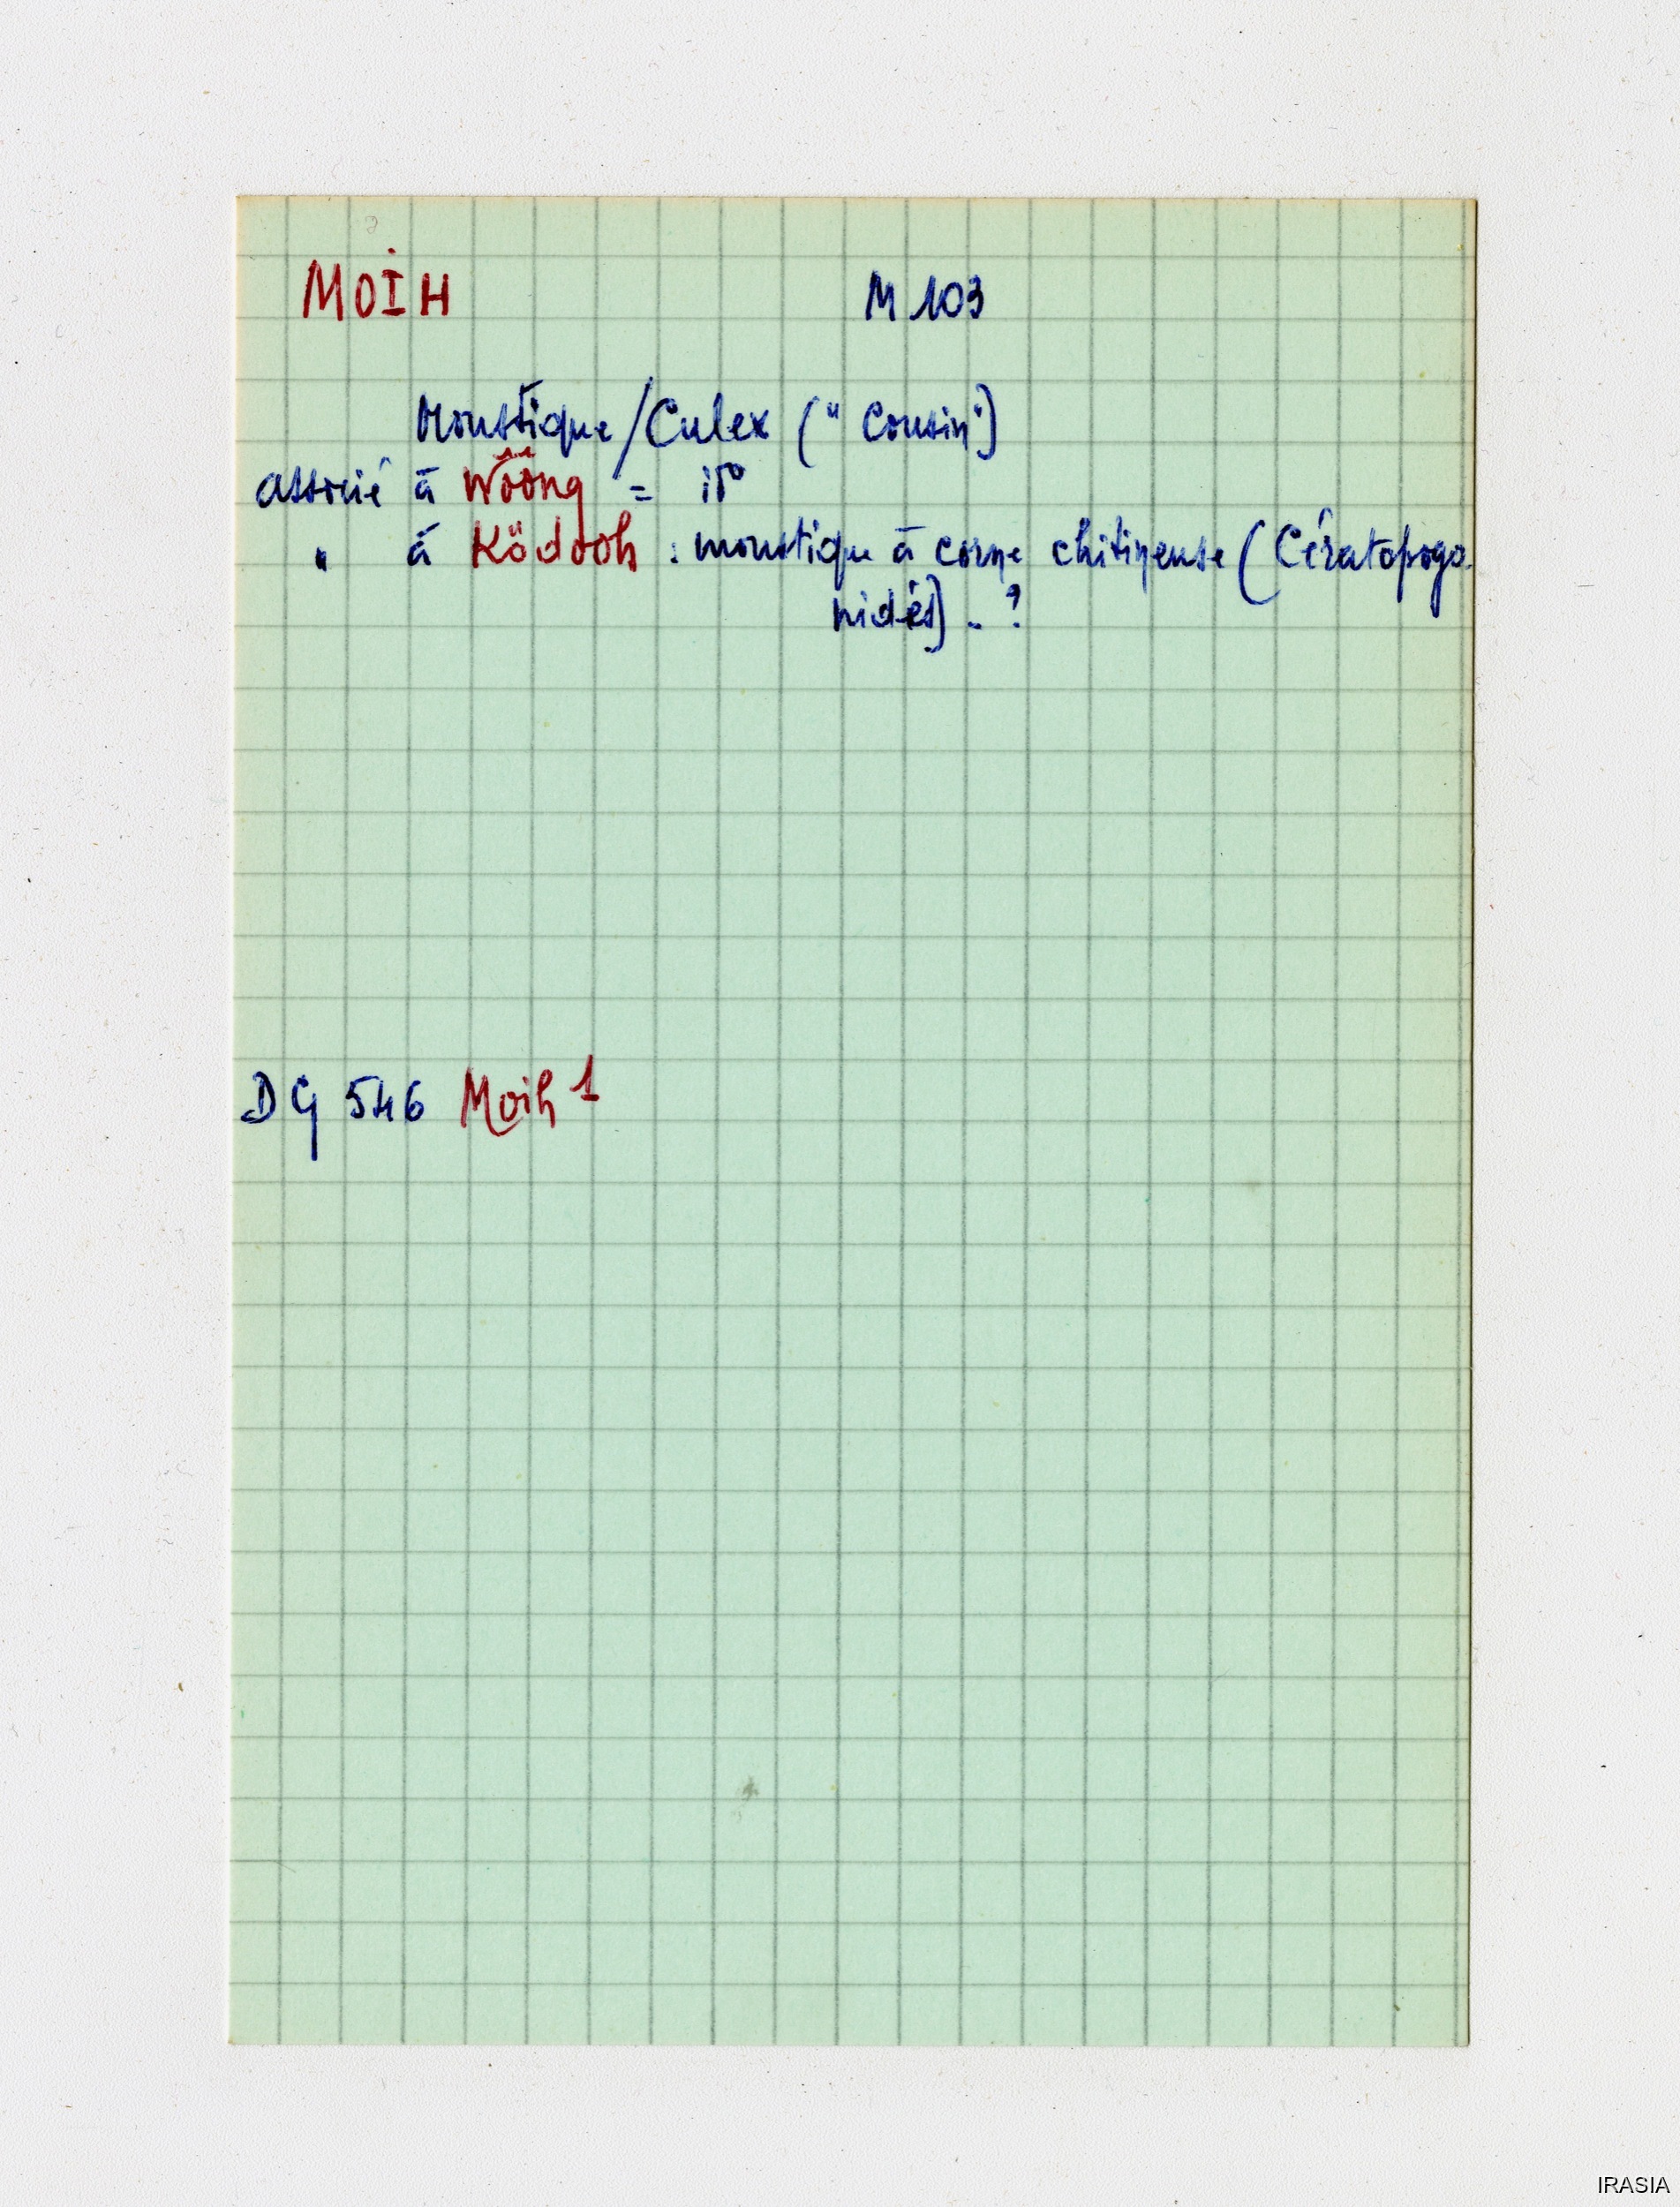 MOIH M 103
Moustique/Culex ("Cousin")
associé à Wôông = id°
" à Ködooh : moustique à corne chitineuse (Cératopogo-
nidés). ?
DG 546 Moih 1
IRASIA